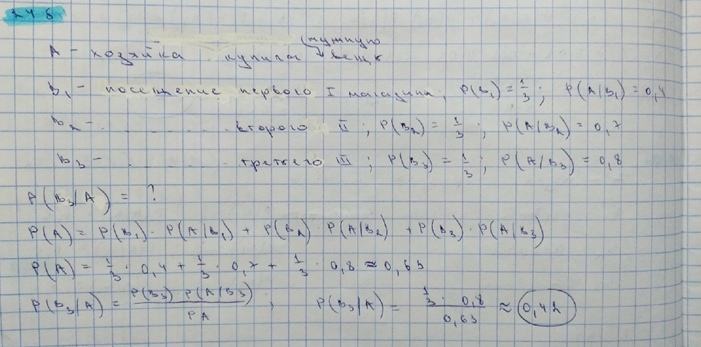 24 б
А - хозяйка купила нужную вещь
B₁ - посещение первого I магазина; P(B₁) = 1/3; P(A/B₁) = 0,4
B₂ - ........... второго II; P(B₂) = 1/3; P(A/B₂) = 0,7
B₃ - ........... третьего III; P(B₃) = 1/3; P(A/B₃) = 0,8
P(B₃/A) = ?
P(A) = P(B₁) · P(A/B₁) + P(B₂) · P(A/B₂) + P(B₃) · P(A/B₃)
P(A) = 1/3 · 0,4 + 1/3 · 0,7 + 1/3 · 0,8 ≈ 0,63
P(B₃/A) = P(B₃) · P(A/B₃) / PA ; P(B₃/A) = 1/3 · 0,8 / 0,63 ≈ 0,42